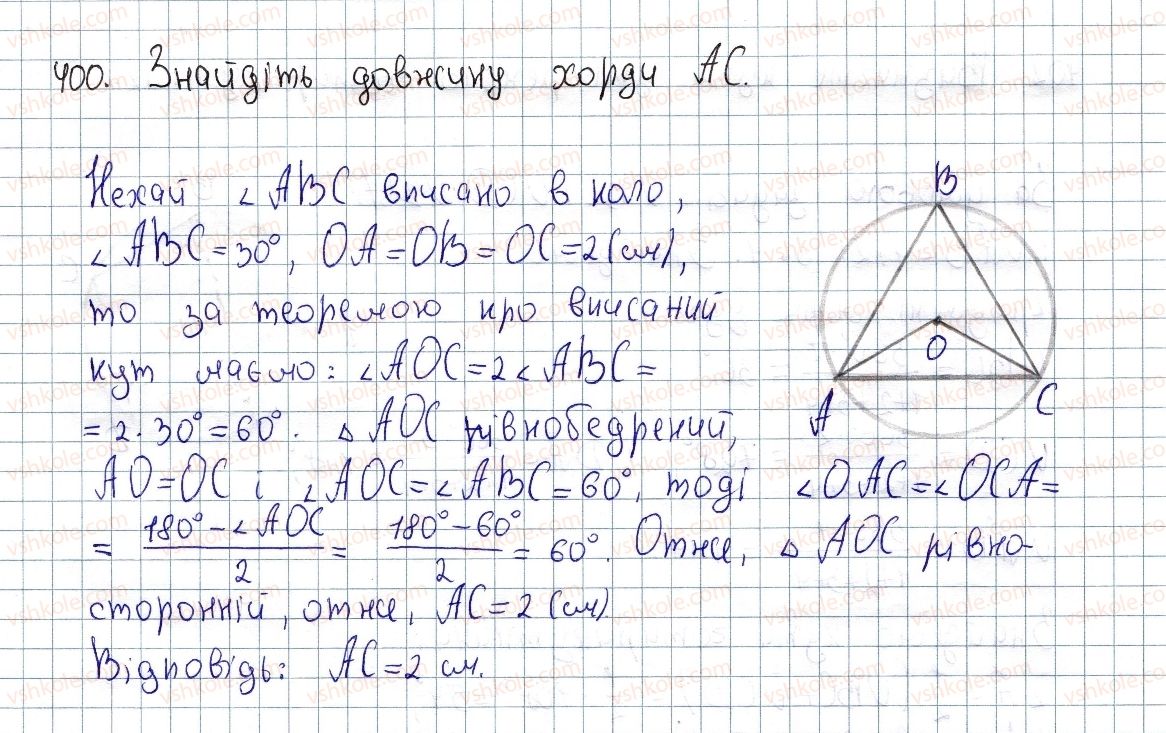 400. Знайдіть довжину хорди AC.
Нехай ∠ABC вписано в коло,
∠ABC = 30°, OA = OB = OC = 2 (см),
то за теоремою про вписаний
кут маємо: ∠AOC = 2∠ABC =
= 2 · 30° = 60°. △ AOC рівнобедрений,
AO = OC і ∠AOC = ∠ABC = 60°, тоді ∠OAC = ∠OCA =
= (180° − ∠AOC)/2 = (180° − 60°)/2 = 60°. Отже, △ AOC рівно-
сторонній, отже, AC = 2 (см).
Відповідь: AC = 2 см.
B
O
A
C
vshkole.com